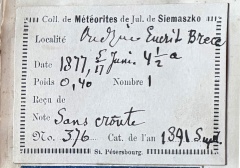 Coll. de Météorites de Jul. de Siemaszko
Localité
Date 1877, 5/17 Juni. 4 1/2 a
Poids 0,40 Nombre 1
Reçu de
Note Sans croûte
No. 376 Cat. de l'an 1891
St. Pétersbourg.